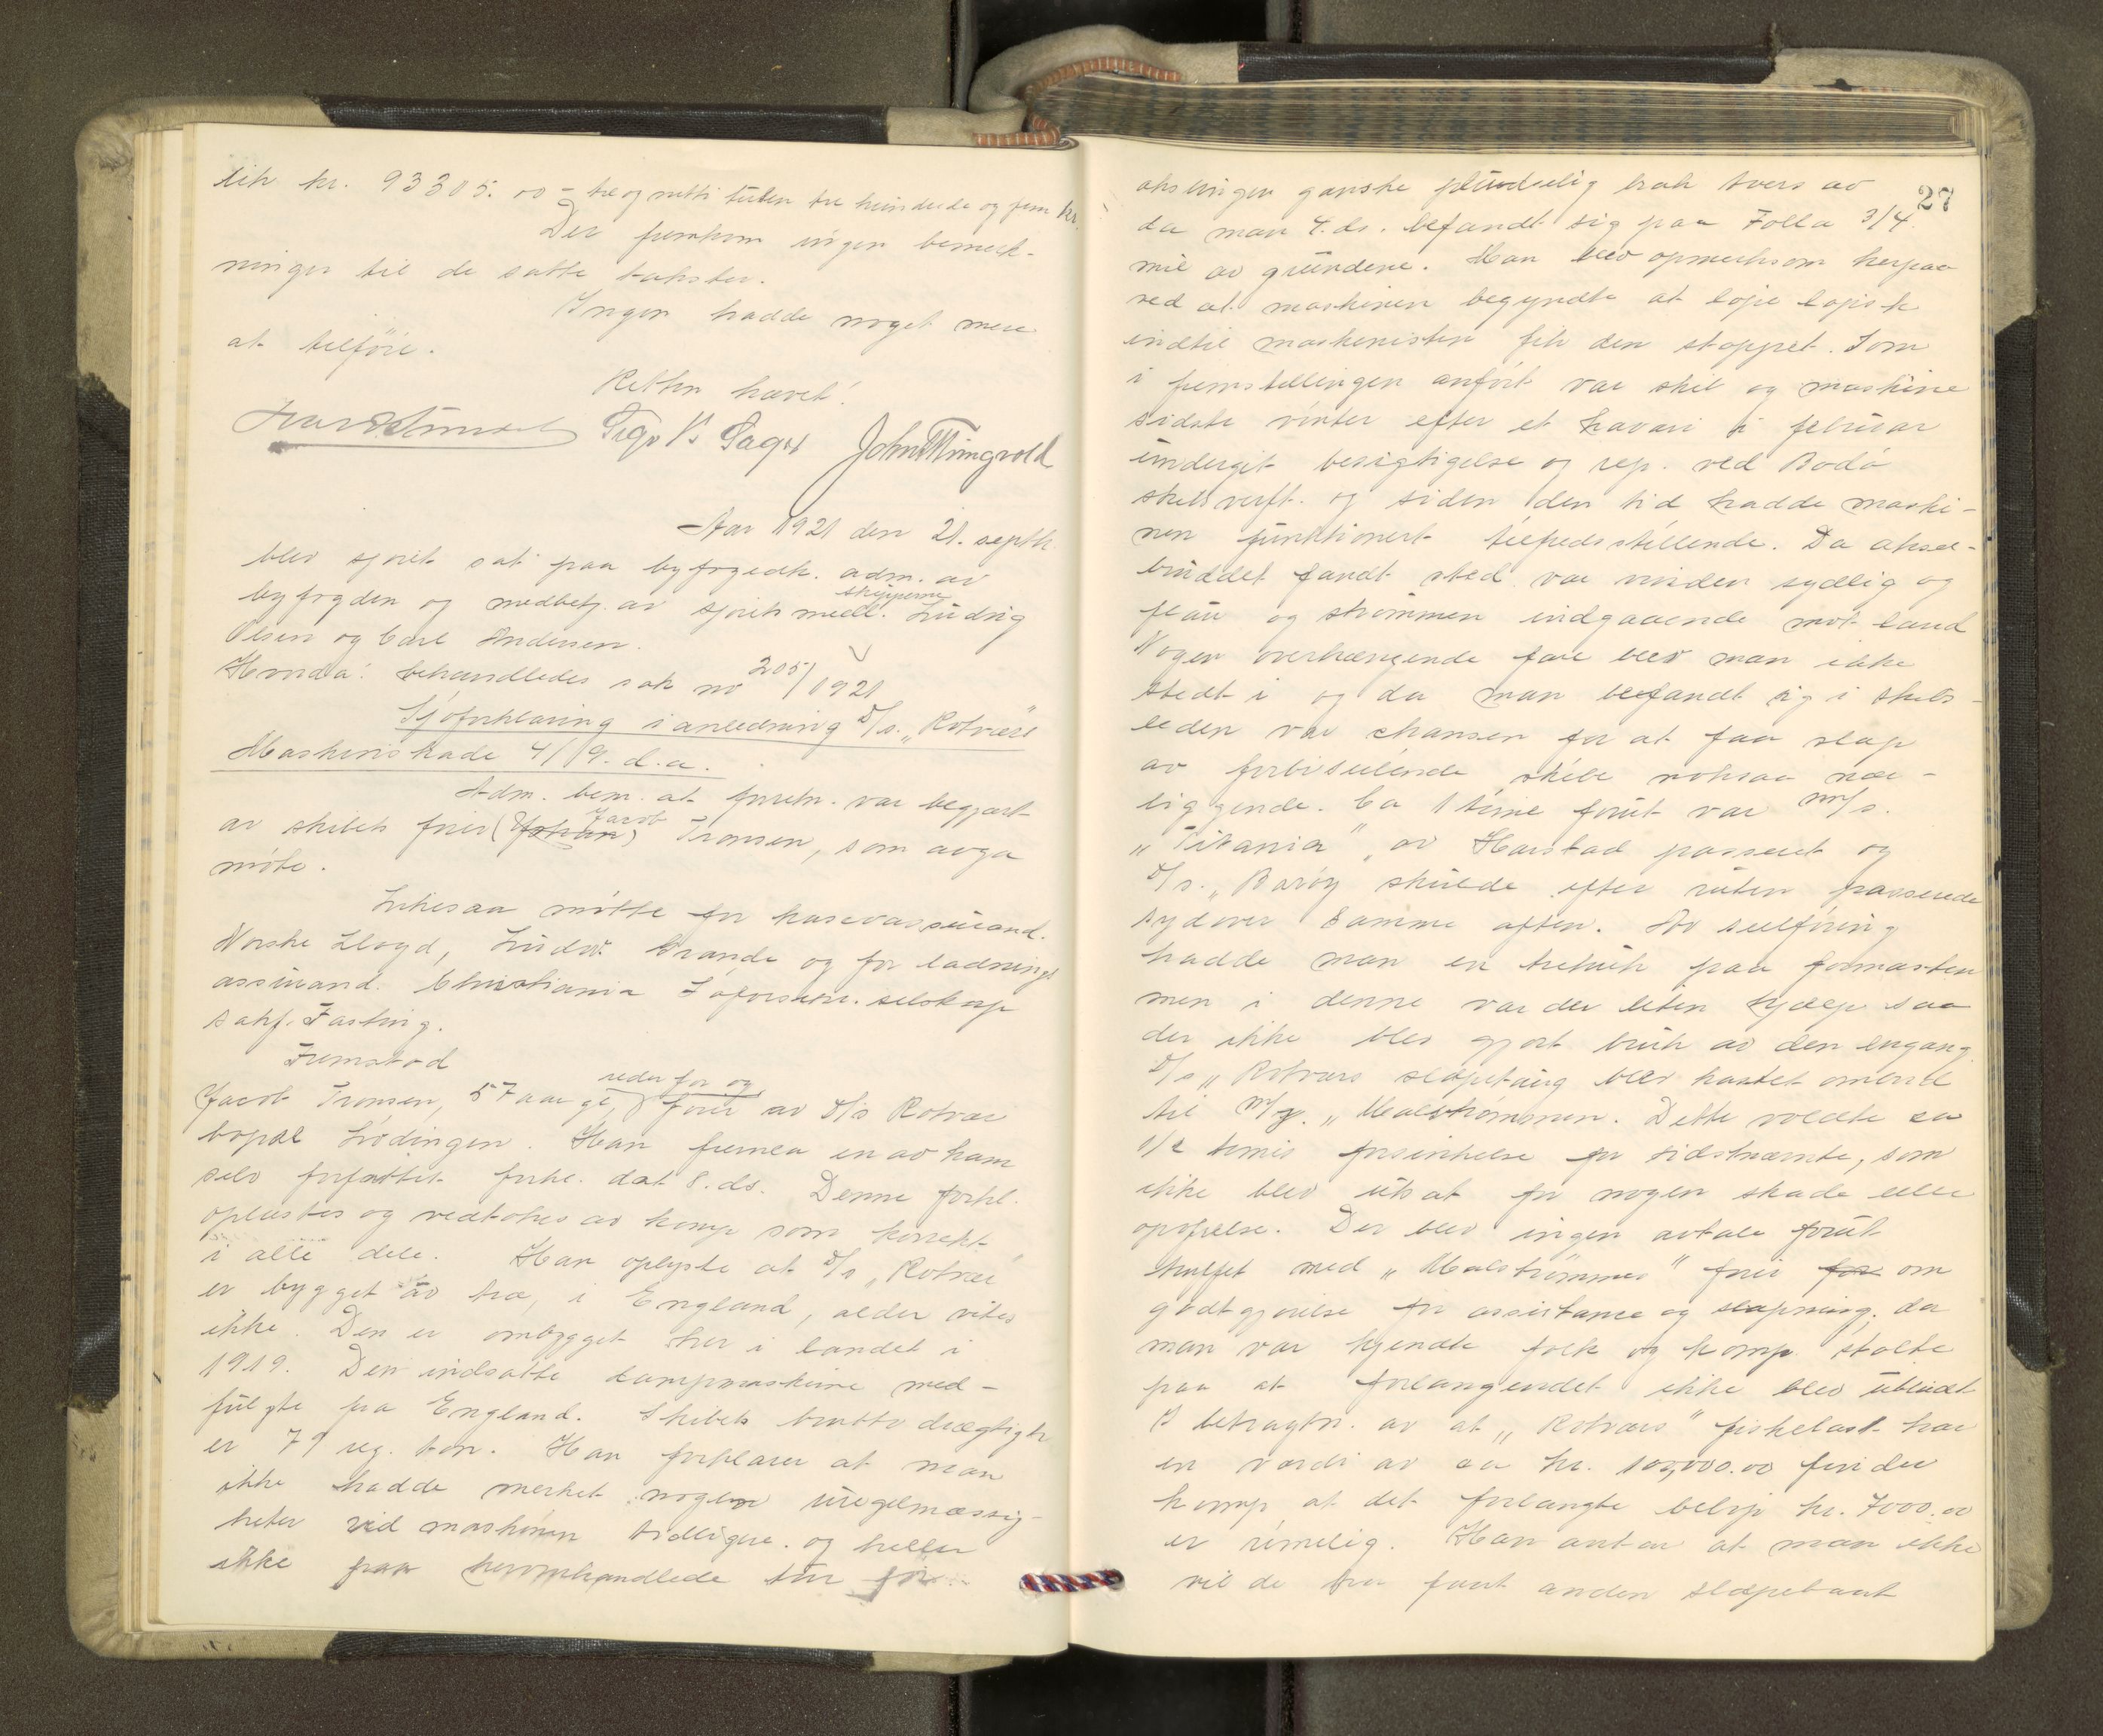 lik kr. 93305.00 – tre og nitti tusen tre hundrede og fem kr.
Der fremkom ingen bemerk-
ninger til de satte takster.
Ingen hadde noget mere
at tilføie.
Retten hævet!
John Tingvold
Aar 1921 den 21. septbr.
blev sjøret sat paa byfogedk. adm. av
byfogden og medbetj. av sjørets medl. skipperne Ludvig
Olsen og Carl Andersen.
Hvorda: behandledes sak no 205/1921
Sjøforklaring i anledning D/s. „Rotvær"
Maskinskade 4/9. d.a.
Adm. bem. at forretn. var begjært
av skibets fører (Johan) Jacob Tronsen, som avga
møte.
Likesaa møtte for kaskoassurand.
Norske Lloyd, Ludv. Brande og for ladnings
assurand. Christiania Søforsikr. selskap
sakf. Fasting.
Fremstod
Jacob Tronsen, 57 aar gl, reder for og fører av D/s Rotvær
bopæl Lødingen. Han fremla en av ham
selv forfattet forkl. dat 8. ds. Denne forkl.
oplæstes og vedtokes av komp som korrekt
i alle dele. Han oplyste at D/s „Rotvær"
er bygget av træ, i England, alder vites
ikke. Den er ombygget her i landet i
1919. Den indsatte dampmaskine med-
fulgte fra England. Skibets brutto drægtigh
er 79 reg. ton. Han forklarer at man
ikke hadde merket nogen uregelmæssig-
heter ved maskinen tidligere og heller
ikke paa heromhandlede tur før
27
akslingen ganske pludselig brak tvers av
da man 4. ds. befandt sig paa Folla 3/4
mil av grundene. Man blev opmerksom herpaa
ved at maskinen begyndte at løpe løpsk
indtil maskinisten fik den stoppet. Som
i fremstillingen anført var skib og maskine
sidste vinter efter et havari i februar
undergit besigtigelse og rep. ved Bodø
skibsverft. og siden den tid hadde maski-
nen funktionert tilfredsstillende. Da aksel-
bruddet fandt sted var vinden sydlig og
flau og strømmen indgaaende mot land
Nogen overhængende fare blev man ikke
stedt i og da man befandt sig i skibs-
leden var chansen for at faa slæp
av forbiseilende skibe noksaa nær-
liggende. Ca 1 time forut var m/s.
„Titania", av Harstad passeret og
D/s. „Barøy skulde efter ruten passerede
sydover samme aften. Av seilføring
hadde man en trekuk paa formasten
men i denne var der liten hjælp saa
der ikke blev gjort bruk av den engang
D/s „Rotværs slæpetaug blev kastet ombord
til M/k. „Malstrømmen. Dette voldte ca
1/2 times forsinkelse for sidstnævnte, som
ikke blev utsat for nogen skade eller
opofrelse. Der blev ingen avtale forut
truffet med „Malstrømmens" fører for om
godtgjørelse for assistance og slæpning, da
man var kjendte folk og komp stolte
paa at forlangendet ikke blev ubluidt
I betragtn. av at „Rotværs" fiskelast har
en værdi av ca kr. 100,000.00 finder
komp at det forlangte beløp kr. 7000.00
er rimelig. Han antar at man ikke
vilde ha faat anden slæpebaat